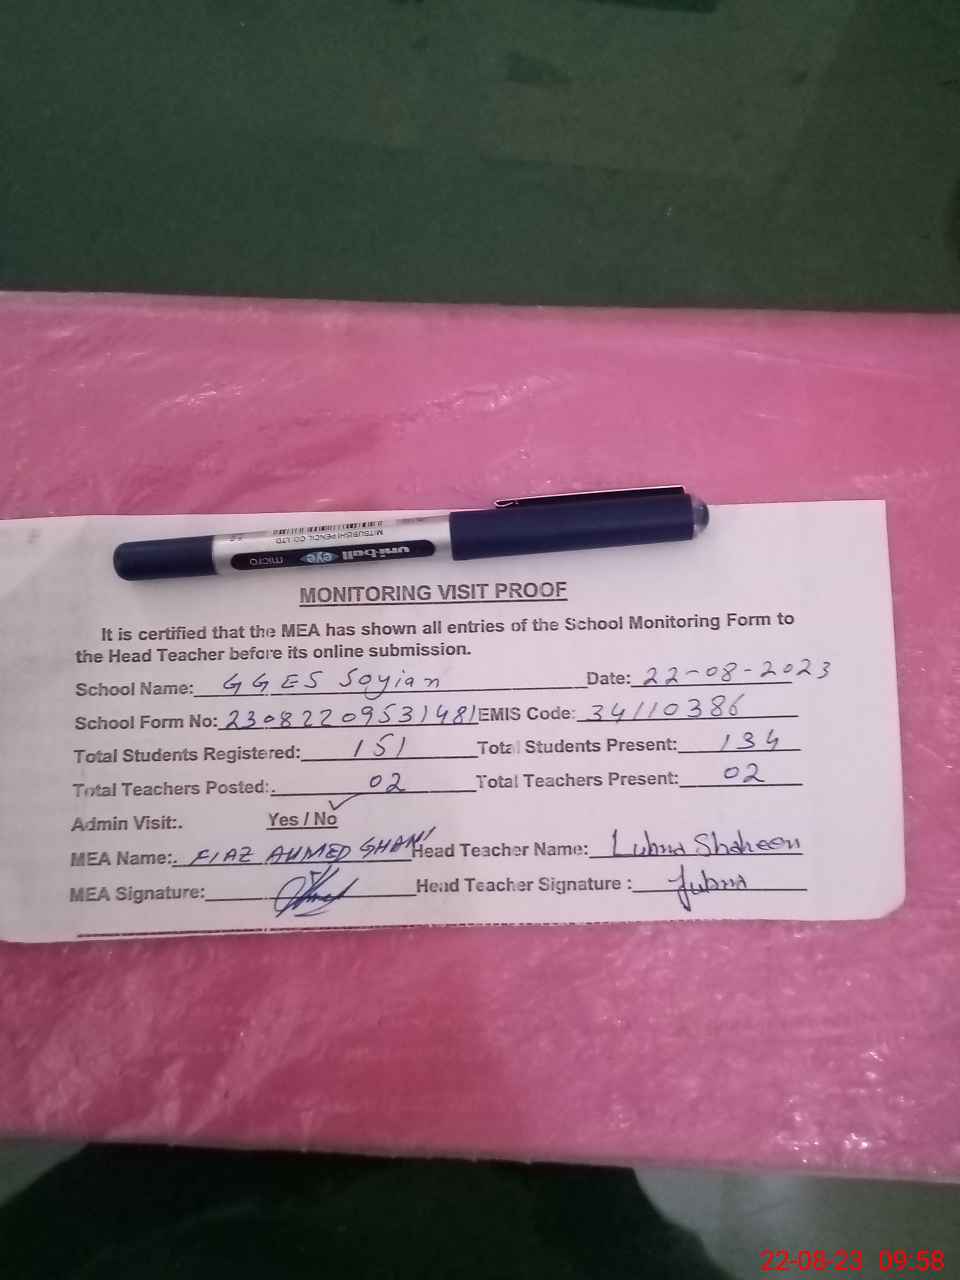 MITSUBISHI PENCIL CO. LTD
uni-ball eye micro
MONITORING VISIT PROOF
It is certified that the MEA has shown all entries of the School Monitoring Form to
the Head Teacher before its online submission.
School Name: GGES Soyian Date: 22-08-2023
School Form No: 23082209531481 EMIS Code: 34110386
Total Students Registered: 151 Total Students Present: 134
Total Teachers Posted:. 02 Total Teachers Present: 02
Admin Visit:. Yes / No ✓
MEA Name:. FIAZ AHMED SHAMI Head Teacher Name: Lubna Shaheen
MEA Signature: Head Teacher Signature : Lubna
22-08-23 09:58